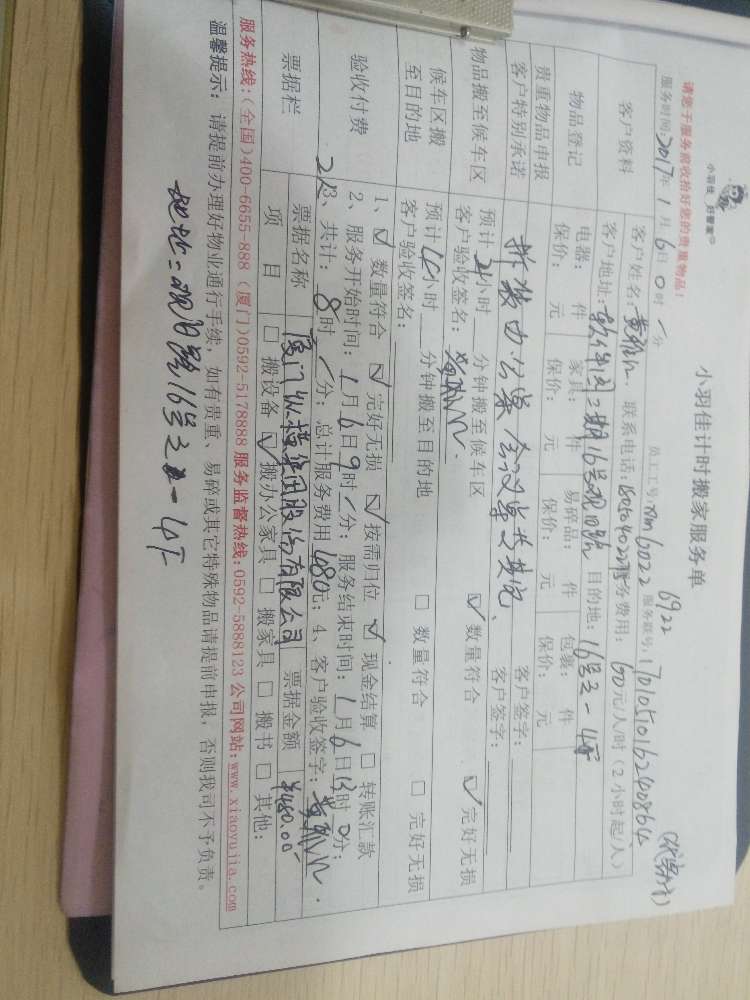 小羽佳 好管家
小羽佳计时搬家服务单
6922
请您于服务前收拾好您的贵重物品!
员工工号: xm6022 服务账号: 17010510162400864
服务时间: 2017年1月6日0时/分
客户资料
客户姓名: 联系电话: 服务费用: 60元/人/时(2小时起/人)
客户地址: 软件园二期16号观日路 目的地: 16号之一4F
物品登记
电器: 件 家具: 件 易碎品: 件 包裹: 件
保价: 元 保价: 元 保价: 元 保价: 元
贵重物品申报
客户签字:
客户特别承诺
拆装办公桌会议桌与其它、
客户签字:
物品搬至候车区
预计 小时 分钟搬至候车区
客户验收签名:
☑ 数量符合 ☑ 完好无损
候车区搬至目的地
预计 小时 分钟搬至目的地
客户验收签名:
□ 数量符合 □ 完好无损
验收付费
1、☑ 数量符合 ☑ 完好无损 ☑ 按需归位 ☑ 现金结算 □ 转账汇款
2、服务开始时间: 1月6日9时/分; 服务结束时间: 1月6日13时0分;
共计: 8时/分; 总计服务费用480元; 4、客户验收签字:
票据栏
票据名称 厦门 集团股份有限公司 票据金额 ¥480.00
项目 □ 搬设备 ☑ 搬办公家具 □ 搬家具 □ 搬书 □ 其他:
服务热线:(全国)400-6655-888 (厦门)0592-5178888 服务监督热线: 0592-5888123 公司网站: www.xiaoyujia.com
温馨提示: 请提前办理好物业通行手续, 如有贵重、易碎或其它特殊物品请提前申报, 否则我司不予负责。
地址=观日路16号之一4F